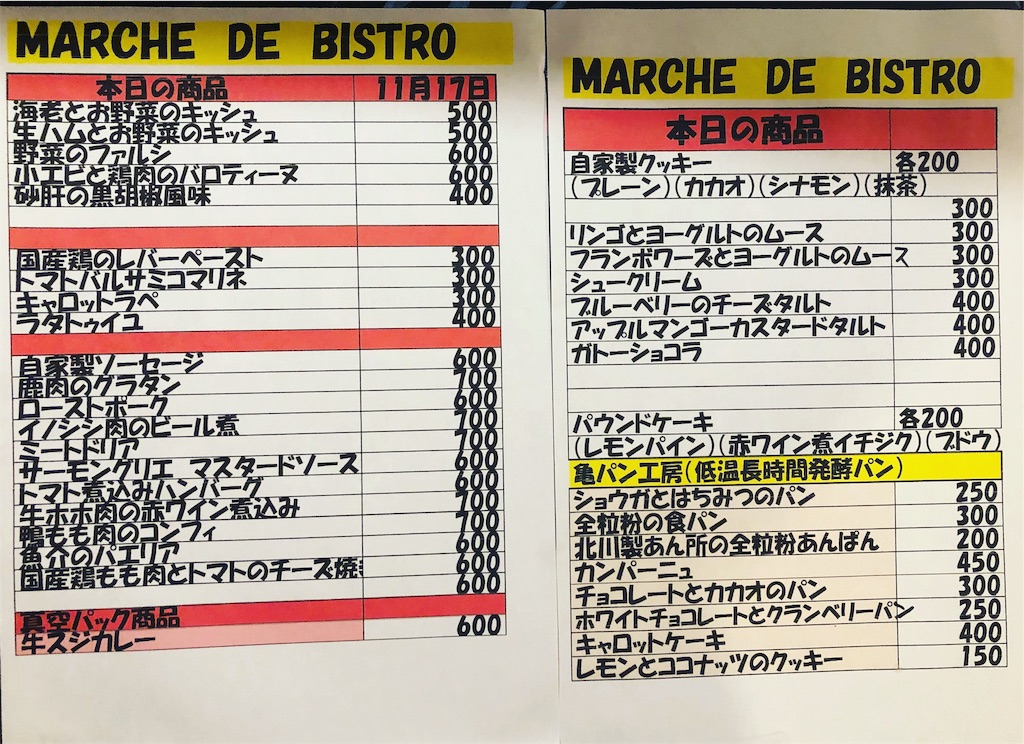 MARCHE DE BISTRO
本日の商品 11月17日
海老とお野菜のキッシュ 500
生ハムとお野菜のキッシュ 500
野菜のファルシ 600
小エビと鶏肉のバロティーヌ 600
砂肝の黒胡椒風味 400
国産鶏のレバーペースト 300
トマトバルサミコマリネ 300
キャロットラペ 300
ラタトゥイユ 400
自家製ソーセージ 600
鹿肉のグラタン 700
ローストポーク 600
イノシシ肉のビール煮 700
ミートドリア 700
サーモングリエ マスタードソース 600
トマト煮込みハンバーグ 600
牛ホホ肉の赤ワイン煮込み 700
鴨もも肉のコンフィ 700
魚介のパエリア 600
国産鶏もも肉とトマトのチーズ焼き 600
600
真空パック商品
牛スジカレー 600
MARCHE DE BISTRO
本日の商品
自家製クッキー 各200
(プレーン)(カカオ)(シナモン)(抹茶)
300
リンゴとヨーグルトのムース 300
フランボワーズとヨーグルトのムース 300
シュークリーム 300
ブルーベリーのチーズタルト 400
アップルマンゴーカスタードタルト 400
ガトーショコラ 400
パウンドケーキ 各200
(レモンパイン)(赤ワイン煮イチジク)(ブドウ)
亀パン工房(低温長時間発酵パン)
ショウガとはちみつのパン 250
全粒粉の食パン 300
北川製あん所の全粒粉あんぱん 200
カンパーニュ 450
チョコレートとカカオのパン 300
ホワイトチョコレートとクランベリーパン 250
キャロットケーキ 400
レモンとココナッツのクッキー 150